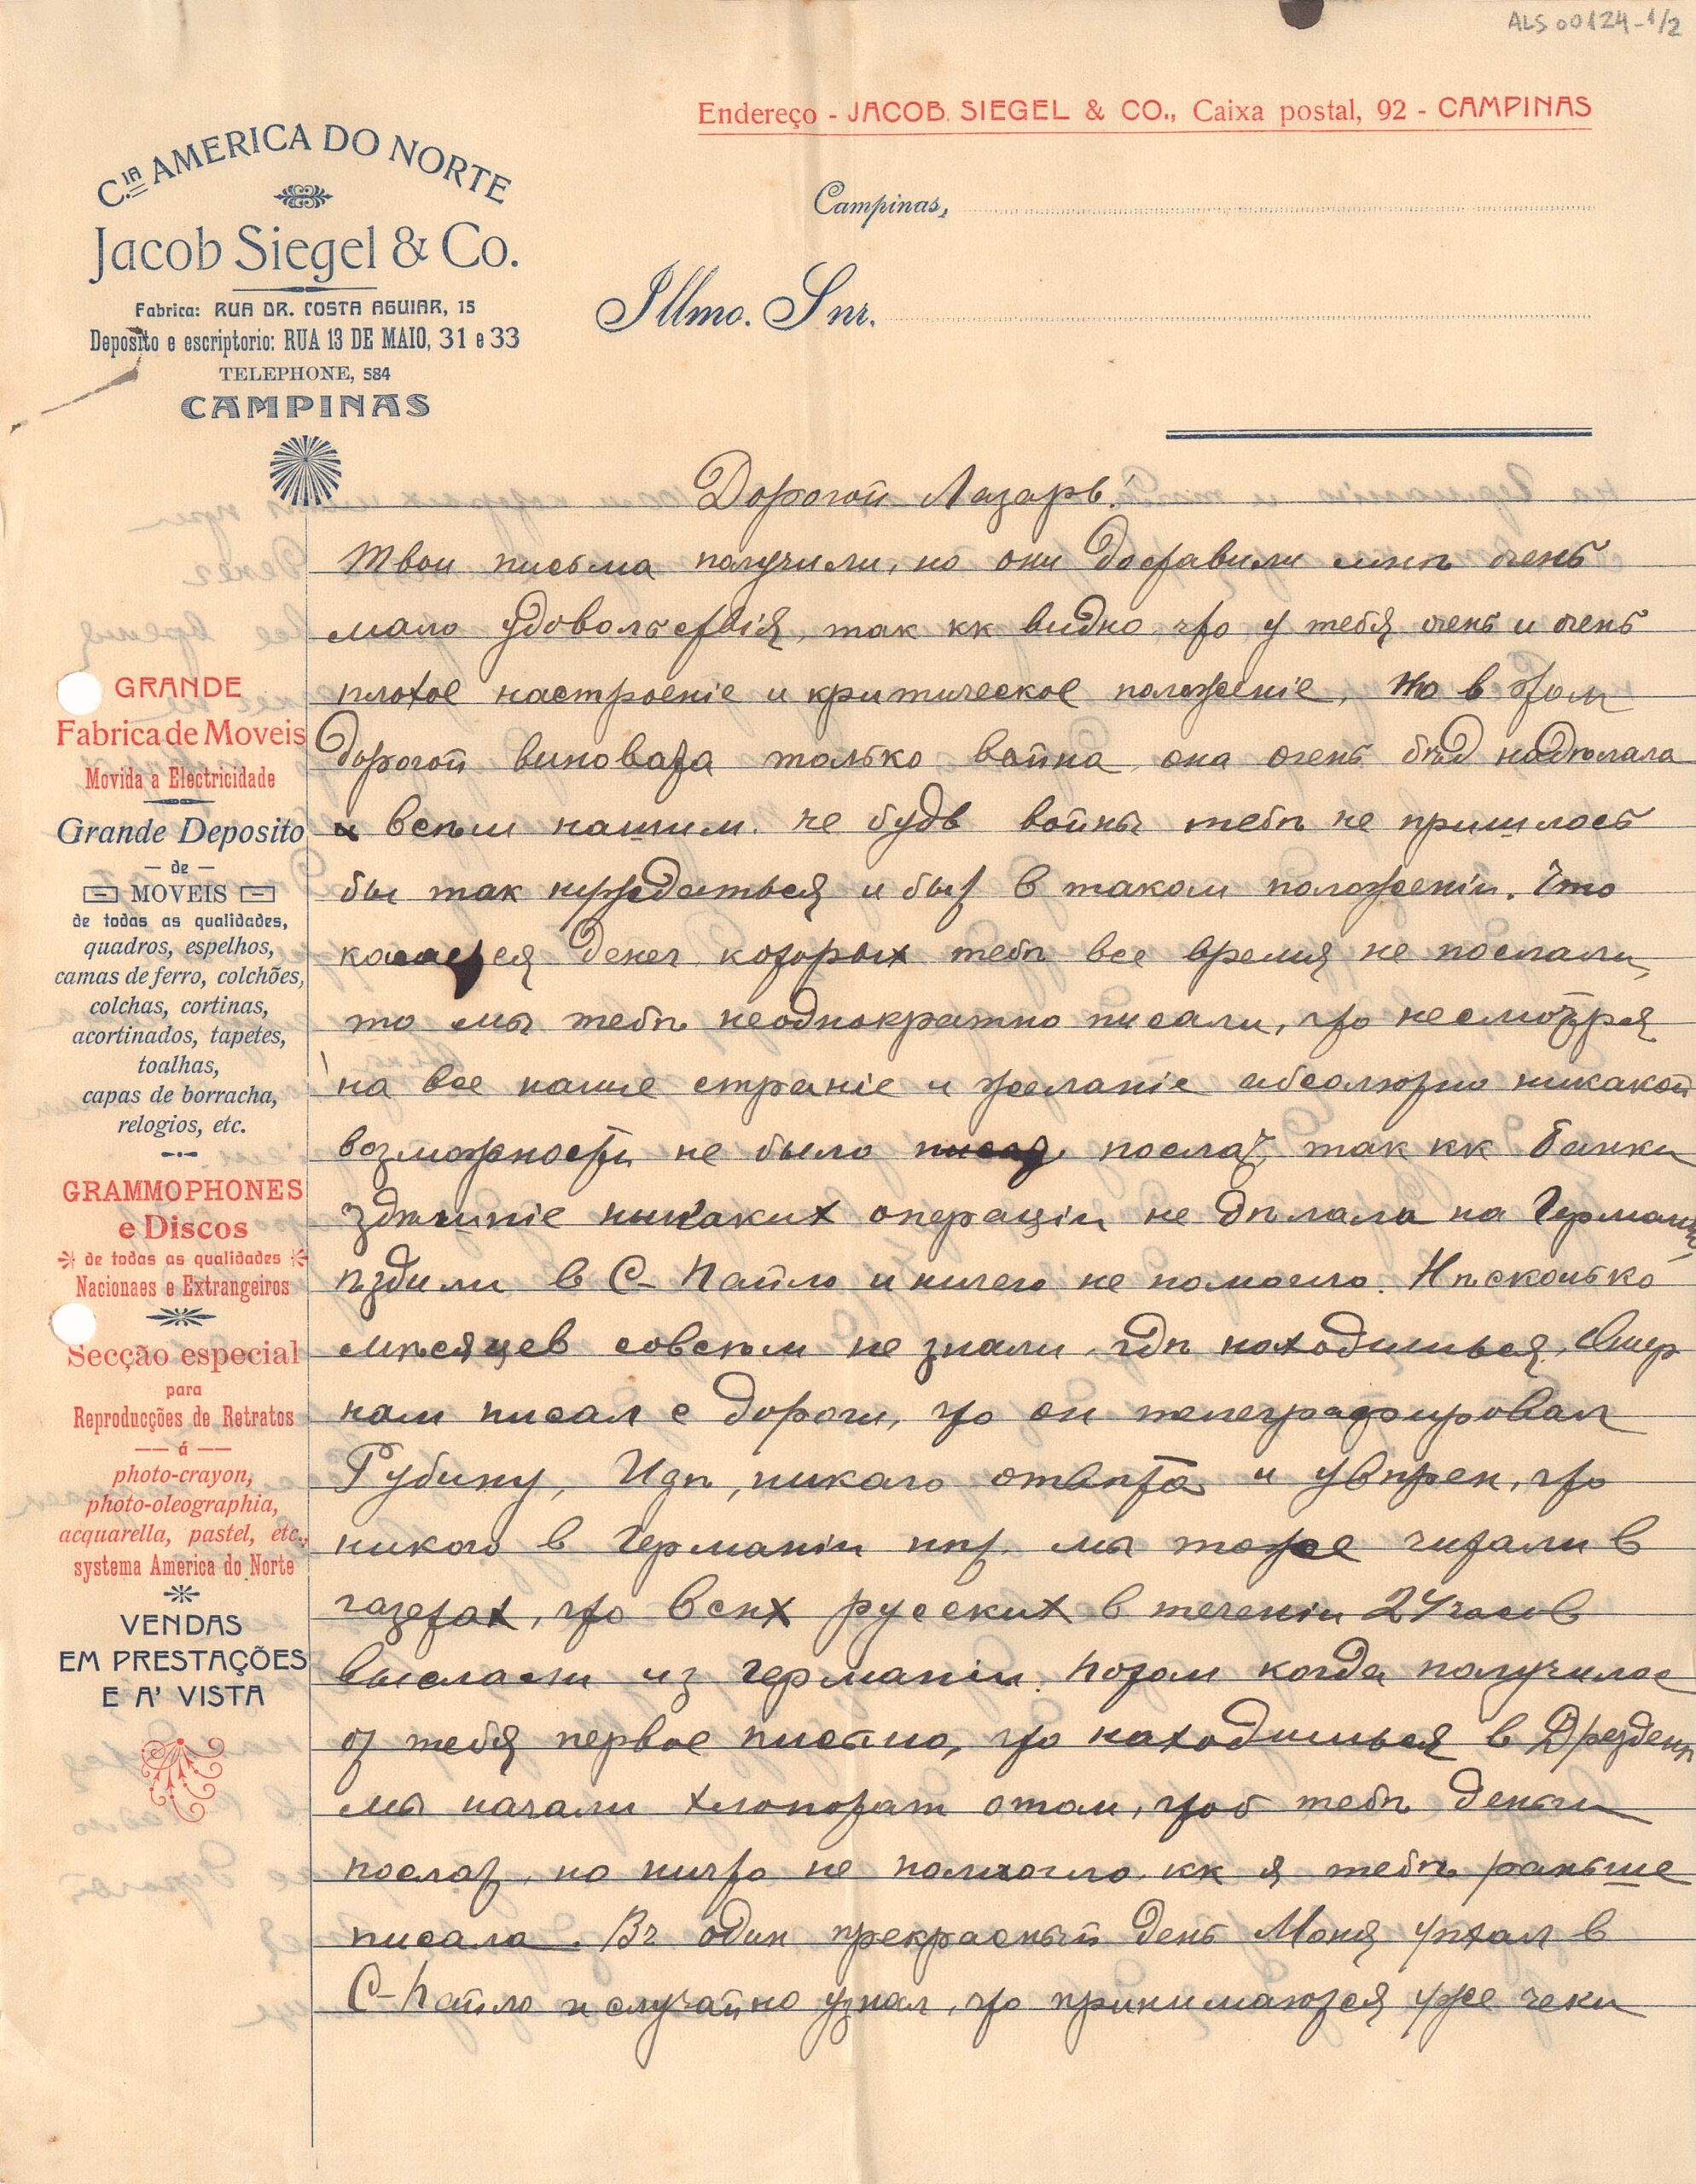 ALS 00124-1/2
Endereço - JACOB SIEGEL & CO., Caixa postal, 92 - CAMPINAS
C.IA AMERICA DO NORTE
Jacob Siegel & Co.
Fabrica: RUA DR. COSTA AGUIAR, 15
Deposito e escriptorio: RUA 13 DE MAIO, 31 e 33
TELEPHONE, 584
CAMPINAS
Campinas,
Illmo. Snr.
GRANDE
Fabrica de Moveis
Movida a Electricidade
Grande Deposito
— de —
MOVEIS
de todas as qualidades,
quadros, espelhos,
camas de ferro, colchões,
colchas, cortinas,
acortinados, tapetes,
toalhas,
capas de borracha,
relogios, etc.
GRAMMOPHONES
e Discos
de todas as qualidades
Nacionaes e Extrangeiros
Secção especial
para
Reproducções de Retratos
— á —
photo-crayon,
photo-oleographia,
acquarella, pastel, etc.,
systema America do Norte
VENDAS
EM PRESTAÇÕES
E A' VISTA
Дорогой Лазарь!
Твои письма получили, но они доставили мнѣ очень
мало удовольствія, так кк видно, что у тебя очень и очень
плохое настроеніе и критическое положеніе, Но в этом
дорогой виновата только война, она очень бѣд надѣлала
всѣм нашим. не будь войны тебѣ не пришлось
бы так нуждаться и быт в таком положеніи. Что
касается денег которых тебѣ все время не послали,
то мы тебѣ неоднократно писали, что несмотря
на все наше страніе и желаніе абсолютно никакой
возможности не было послат, так кк банки
здѣшніе никаких операціи не дѣлала на Герман
ѣздили в С-Пауло и ничего не помогло. Нѣсколько
мѣсяцев совсѣм не знали, гдѣ находишься,
нам писал с дороги, что он телеграфировал
Рубину, никаго отвѣта и увѣрен, что
никого в Германіи нѣт. мы тоже читали в
газетах, что всѣх русских в теченіи 24 часов
выслали из Германіи. Потом когда получилос
от тебя первое письмо, что находишься в Дрезденѣ
мы начали хлопотат отом, чтоб тебѣ деньги
послат, но ничто не помогло. кк я тебѣ раньше
писала. Въ один прекрасный день Моня уѣхал в
С-Пауло и случайно узнал, что принимаются уже чеки